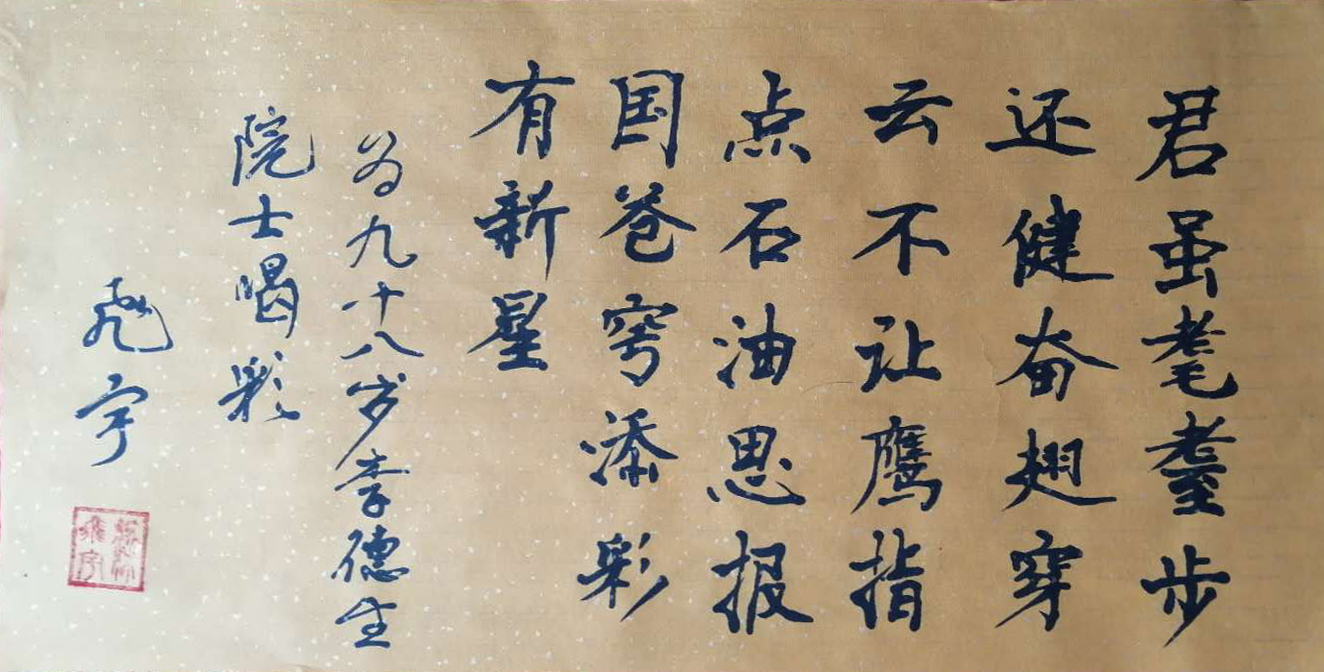 君虽耄耋步
还健奋翅穿
云不让鹰指
点石油思报
国苍穹添彩
有新星
为九十八岁李德生
院士喝彩
飞宇